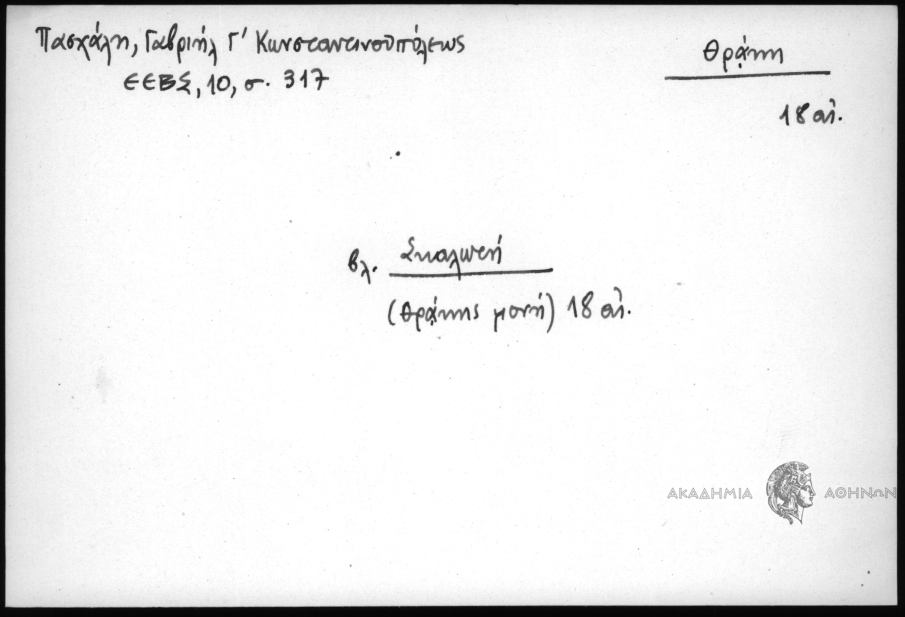 Πασχάλη, Γαβριήλ Γ' Κωνσταντινουπόλεως
ΕΕΒΣ, 10, σ. 317
Θρᾴκη
18 αἰ.
βλ. Σκαλωτή
(Θρᾴκης μονή) 18 αἰ.
ΑΚΑΔΗΜΙΑ ΑΘΗΝΩΝ